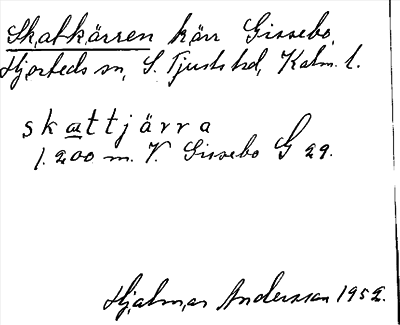 Skatkärren kärr Gissebo
Hjorteds sn, S. Tjusts hd, Kalm. l.
skattjärra
1.200 m. V. Gissebo G 29.
Hjalmar Andersson 1952.